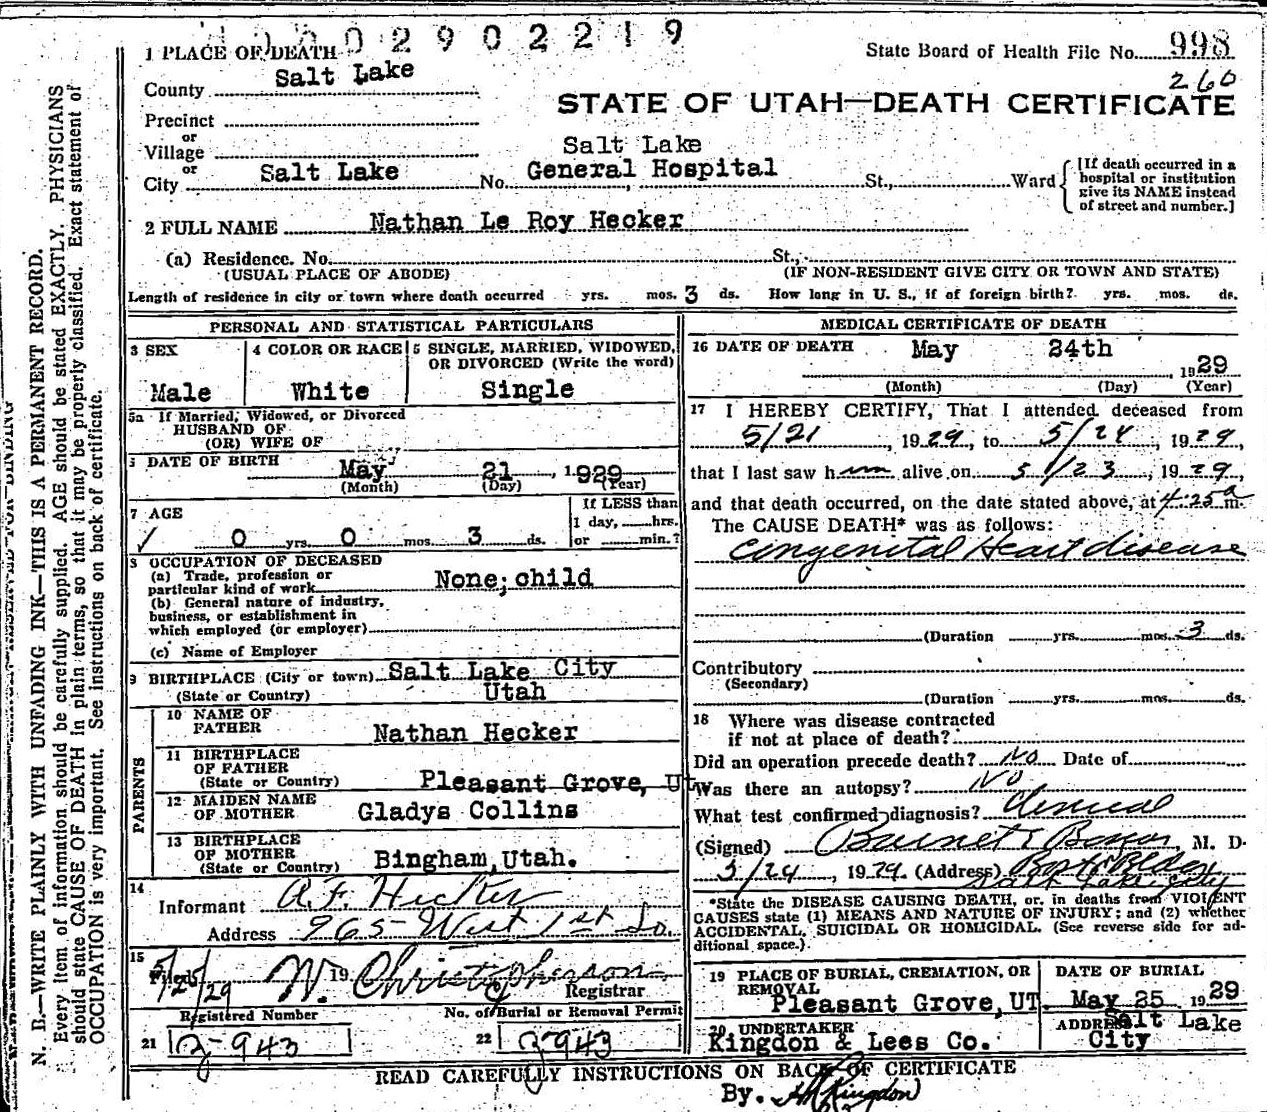 002902219
1 PLACE OF DEATH
State Board of Health File No. 998
260
County Salt Lake
STATE OF UTAH—DEATH CERTIFICATE
Precinct
or
Village
or
City Salt Lake No. Salt Lake General Hospital St., Ward
[If death occurred in a hospital or institution give its NAME instead of street and number.]
2 FULL NAME Nathan Le Roy Hecker
(a) Residence. No. St.,
(USUAL PLACE OF ABODE) (IF NON-RESIDENT GIVE CITY OR TOWN AND STATE)
Length of residence in city or town where death occurred yrs. mos. 3 ds. How long in U. S., if of foreign birth? yrs. mos. ds.
PERSONAL AND STATISTICAL PARTICULARS
3 SEX
Male
4 COLOR OR RACE
White
5 SINGLE, MARRIED, WIDOWED, OR DIVORCED (Write the word)
Single
5a If Married, Widowed, or Divorced
HUSBAND OF
(OR) WIFE OF
DATE OF BIRTH May 21 1929
(Month) (Day) (Year)
7 AGE
If LESS than
1 day, hrs.
or min.?
0 yrs. 0 mos. 3 ds.
8 OCCUPATION OF DECEASED
(a) Trade, profession or
particular kind of work None; child
(b) General nature of industry,
business, or establishment in
which employed (or employer)
(c) Name of Employer
9 BIRTHPLACE (City or town) Salt Lake City
(State or Country) Utah
PARENTS
10 NAME OF
FATHER Nathan Hecker
11 BIRTHPLACE
OF FATHER
(State or Country) Pleasant Grove, Ut
12 MAIDEN NAME
OF MOTHER Gladys Collins
13 BIRTHPLACE
OF MOTHER
(State or Country) Bingham, Utah.
14
Informant A. F. Hecker
Address 965 West 1st So.
15
Filed 5/25/29 19 W. Christopherson
Registrar
Registered Number No. of Burial or Removal Permit
21 2-943 22 2-943
MEDICAL CERTIFICATE OF DEATH
16 DATE OF DEATH May 24th 1929
(Month) (Day) (Year)
17 I HEREBY CERTIFY, That I attended deceased from
5/21, 1929, to 5/24, 1929,
that I last saw him alive on 5/23, 1929,
and that death occurred, on the date stated above, at 4:25 a m.
The CAUSE DEATH* was as follows:
Congenital Heart disease
(Duration yrs. mos. 3 ds.
Contributory
(Secondary)
(Duration yrs. mos. ds.
18 Where was disease contracted
if not at place of death?
Did an operation precede death? No Date of
Was there an autopsy? No
What test confirmed diagnosis? Clinical
(Signed) M. D.
5/24, 1929. (Address)
Salt Lake City
*State the DISEASE CAUSING DEATH, or, in deaths from VIOLENT
CAUSES state (1) MEANS AND NATURE OF INJURY; and (2) whether
ACCIDENTAL, SUICIDAL OR HOMICIDAL. (See reverse side for ad-
ditional space.)
19 PLACE OF BURIAL, CREMATION, OR
REMOVAL
Pleasant Grove, UT
DATE OF BURIAL
May 25 1929
20 UNDERTAKER
Kingdon & Lees Co.
ADDRESS Salt Lake
City
READ CAREFULLY INSTRUCTIONS ON BACK OF CERTIFICATE
By. Kingdon
N. B.—WRITE PLAINLY WITH UNFADING INK—THIS IS A PERMANENT RECORD.
Every item of information should be carefully supplied. AGE should be stated EXACTLY. PHYSICIANS
should state CAUSE OF DEATH in plain terms, so that it may be properly classified. Exact statement of
OCCUPATION is very important. See instructions on back of certificate.